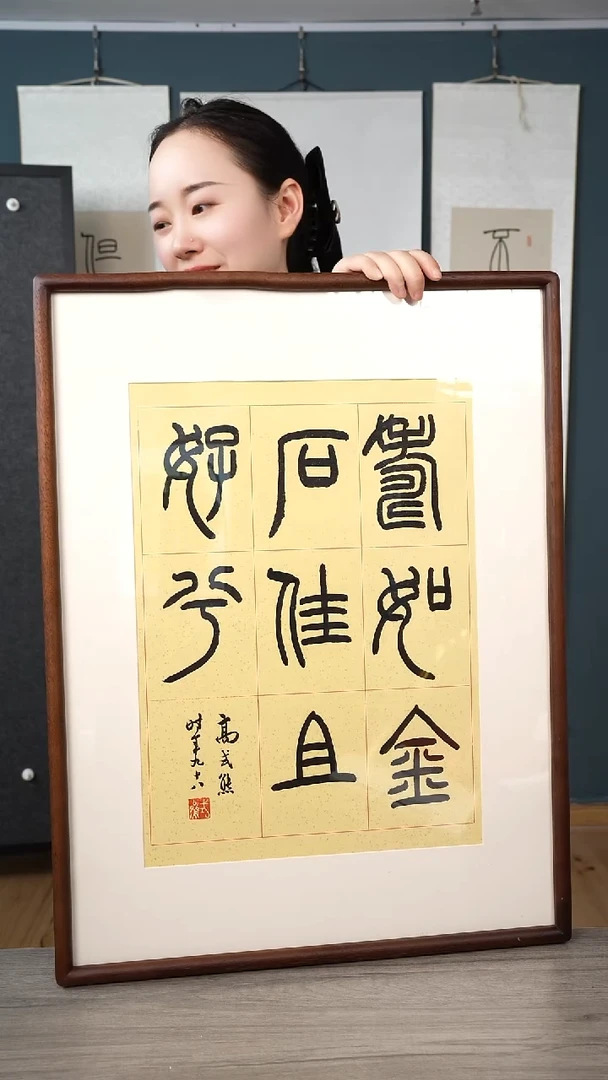 壽如金
石佳且
好兮
高式熊
时年九十八
但